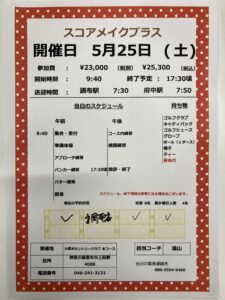 スコアメイクプラス
開催日 5月25日 (土)
参加費 : ¥23,000 (税別) ¥25,300 (税込)
開始時刻 : 9:40 終了予定 : 17:30頃
送迎時間 : 調布駅 7:30 府中駅 7:50
当日のスケジュール 持ち物
午前 午後
9:40 集合・受付 コース内練習
準備体操
アプローチ練習
バンカー練習 17:30頃 挨拶・終了
パター練習
昼食
ゴルフクラブ
キャディバック
ゴルフシューズ
グローブ
ボール (1ダース)
帽子
ティー
昼食代
開催地 大厚木カントリークラブ 本コース
担当コーチ 浦山
住所 神奈川県厚木市上荻野
4088
電話番号 046-241-3131
当日の緊急連絡先
080-3554-9460